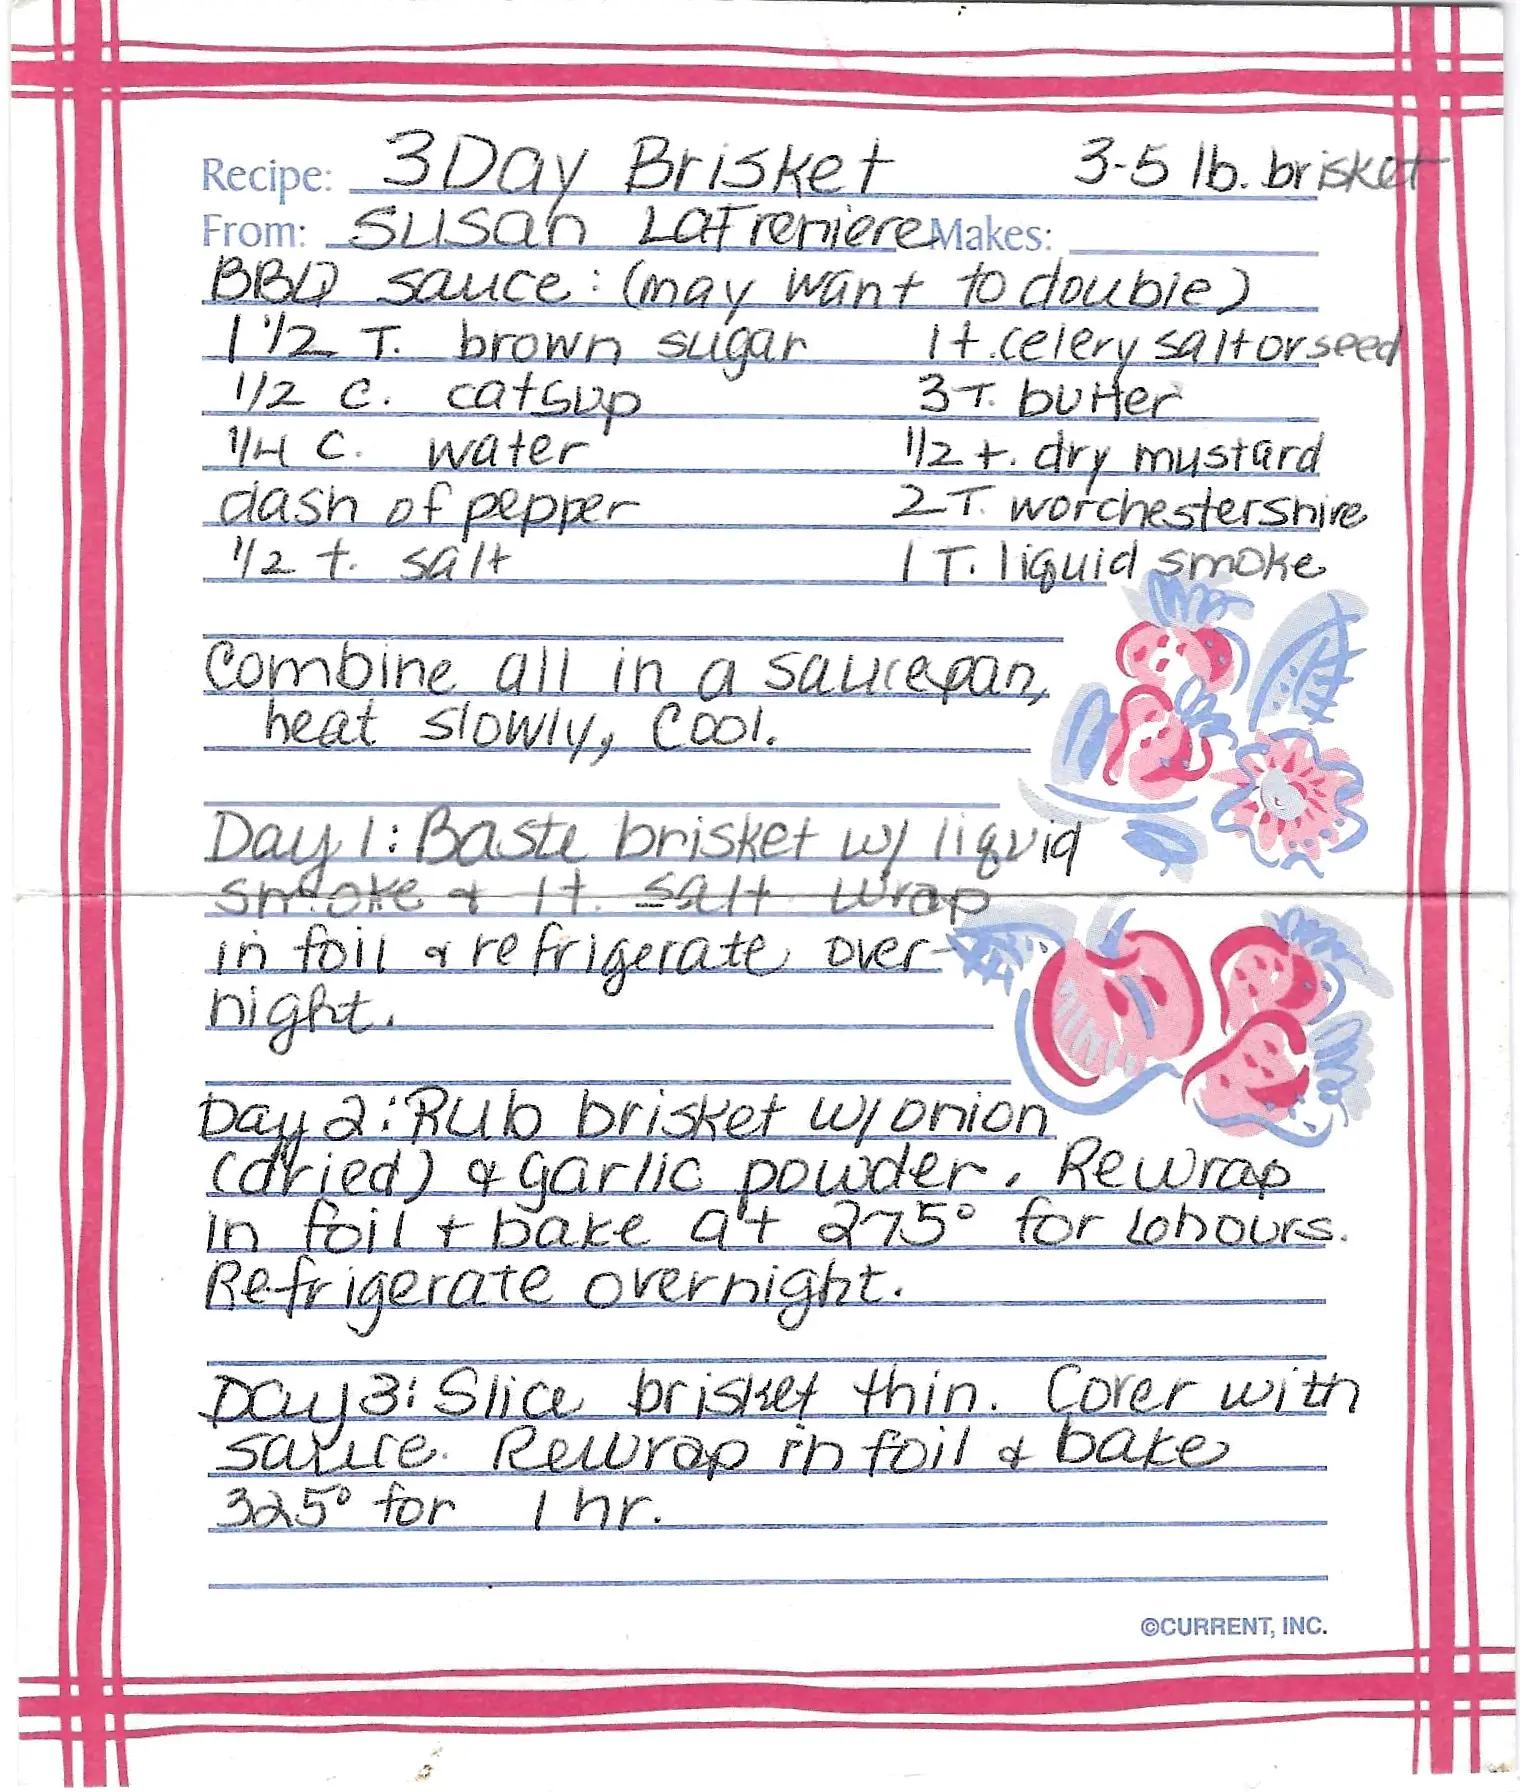 Recipe: 3 Day Brisket 3-5 lb. brisket
From: Susan LaFreniere Makes:
BBQ sauce: (may want to double)
1 1/2 T. brown sugar 1 t. celery salt or seed
1/2 c. catsup 3 T. butter
1/4 c. water 1/2 t. dry mustard
dash of pepper 2 T. worchestershire
1/2 t. salt 1 T. liquid smoke
Combine all in a saucepan,
heat slowly, cool.
Day 1: Baste brisket w/ liquid
smoke & 1 t. salt. Wrap
in foil & refrigerate over-
night.
Day 2: Rub brisket w/ onion
(dried) & garlic powder. Rewrap
in foil + bake at 275° for 6 hours.
Refrigerate overnight.
Day 3: Slice brisket thin. Cover with
sauce. Rewrap in foil & bake
325° for 1 hr.
©CURRENT, INC.